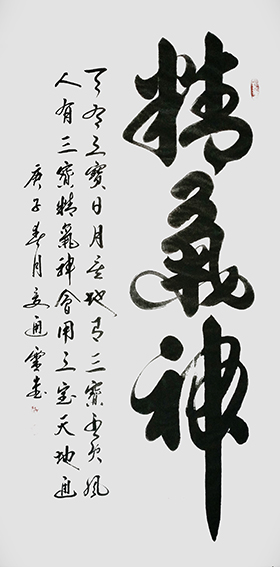 精氣神
天有三寶日月星地有三寶水火風
人有三寶精氣神會用三宝天地通
庚子春月通雲書